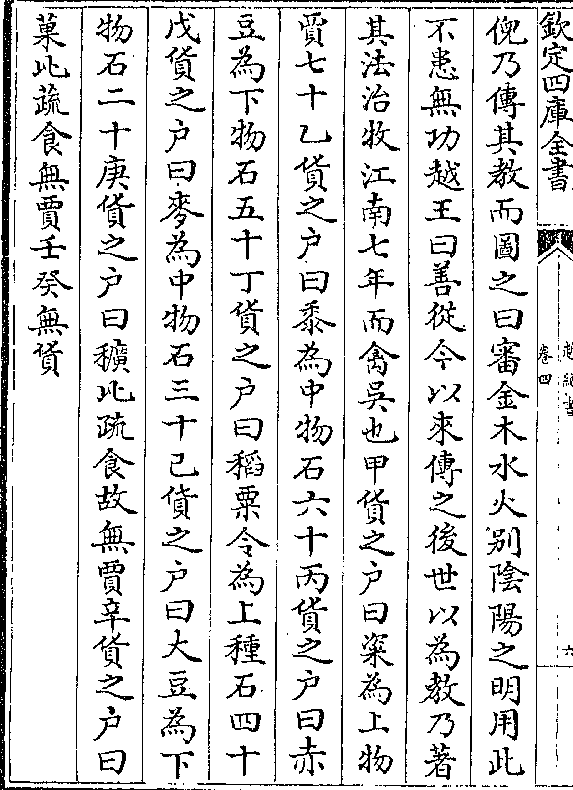 欽定四庫全書
越絕書
卷四
六
倪乃傳其教而圖之曰審金木水火别陰陽之明用此
不患無功越王曰善從今以來傳之後世以為教乃著
其法治牧江南七年而禽吳也甲貨之户曰粢為上物
賈七十乙貨之户曰黍為中物石六十丙貨之户曰赤
豆為下物石五十丁貨之户曰稻粟令為上種石四十
戊貨之户曰麥為中物石三十己貨之户曰大豆為下
物石二十庚貨之户曰穬此疏食故無賈辛貨之户曰
菓此蔬食無賈壬癸無貨